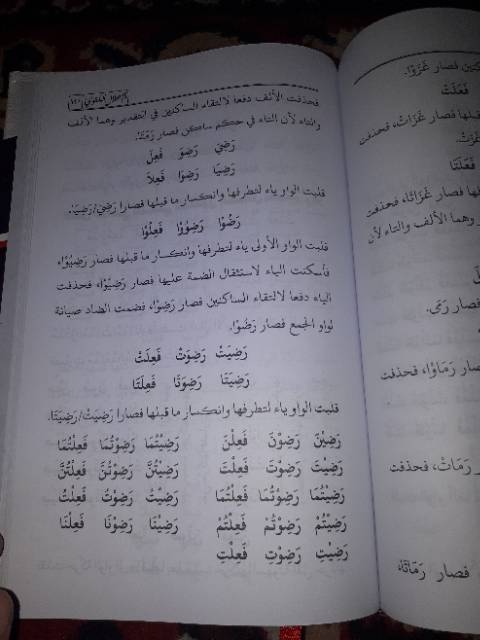 فحذفت الألف دفعا لالتقاء الساكنين في التقدير وهما الألف
والتاء لأن التاء في حكم ساكن فصار رَمَتَا.
رَضِيَ رَضِوَ فَعِلَ
رَضِيَا رَضِوَا فَعِلَا
قلبت الواو ياء لتطرفها وانكسار ما قبلها فصارا رَضِيَ/رَضِيَا.
رَضُوْا رَضِوُوْا فَعِلُوْا
قلبت الواو الأولى ياء لتطرفها وانكسار ما قبلها فصار رَضِيُوْا،
فأسكنت الياء لاستثقال الضمة عليها فصار رَضِيْوْا، فحذفت
الياء دفعا لالتقاء الساكنين فصار رَضِوْا، فضمت الضاد صيانة
لواو الجمع فصار رَضُوْا.
رَضِيَتْ رَضِوَتْ فَعِلَتْ
رَضِيَتَا رَضِوَتَا فَعِلَتَا
قلبت الواو ياء لتطرفها وانكسار ما قبلها فصارا رَضِيَتْ/رَضِيَتَا.
رَضِيْنَ رَضِوْنَ فَعِلْنَ رَضِيْتُمَا رَضِوْتُمَا فَعِلْتُمَا
رَضِيْتَ رَضِوْتَ فَعِلْتَ رَضِيْتُنَّ رَضِوْتُنَّ فَعِلْتُنَّ
رَضِيْتُمَا رَضِوْتُمَا فَعِلْتُمَا رَضِيْتُ رَضِوْتُ فَعِلْتُ
رَضِيْتُمْ رَضِوْتُمْ فَعِلْتُمْ رَضِيْنَا رَضِوْنَا فَعِلْنَا
رَضِيْتِ رَضِوْتِ فَعِلْتِ
فصار غَزَوْا.
فَعَلَتْ
قبلها فصار غَزَاتْ، فحذفت
غَزَتْ.
فَعَلَتَا
قبلها فصار غَزَاتَا، فحذفت
وهما الألف والتاء لأن
فصار رَمَى.
فصار رَمَاوْا، فحذفت
رَمَاتْ، فحذفت
فصار رَمَاتَا،